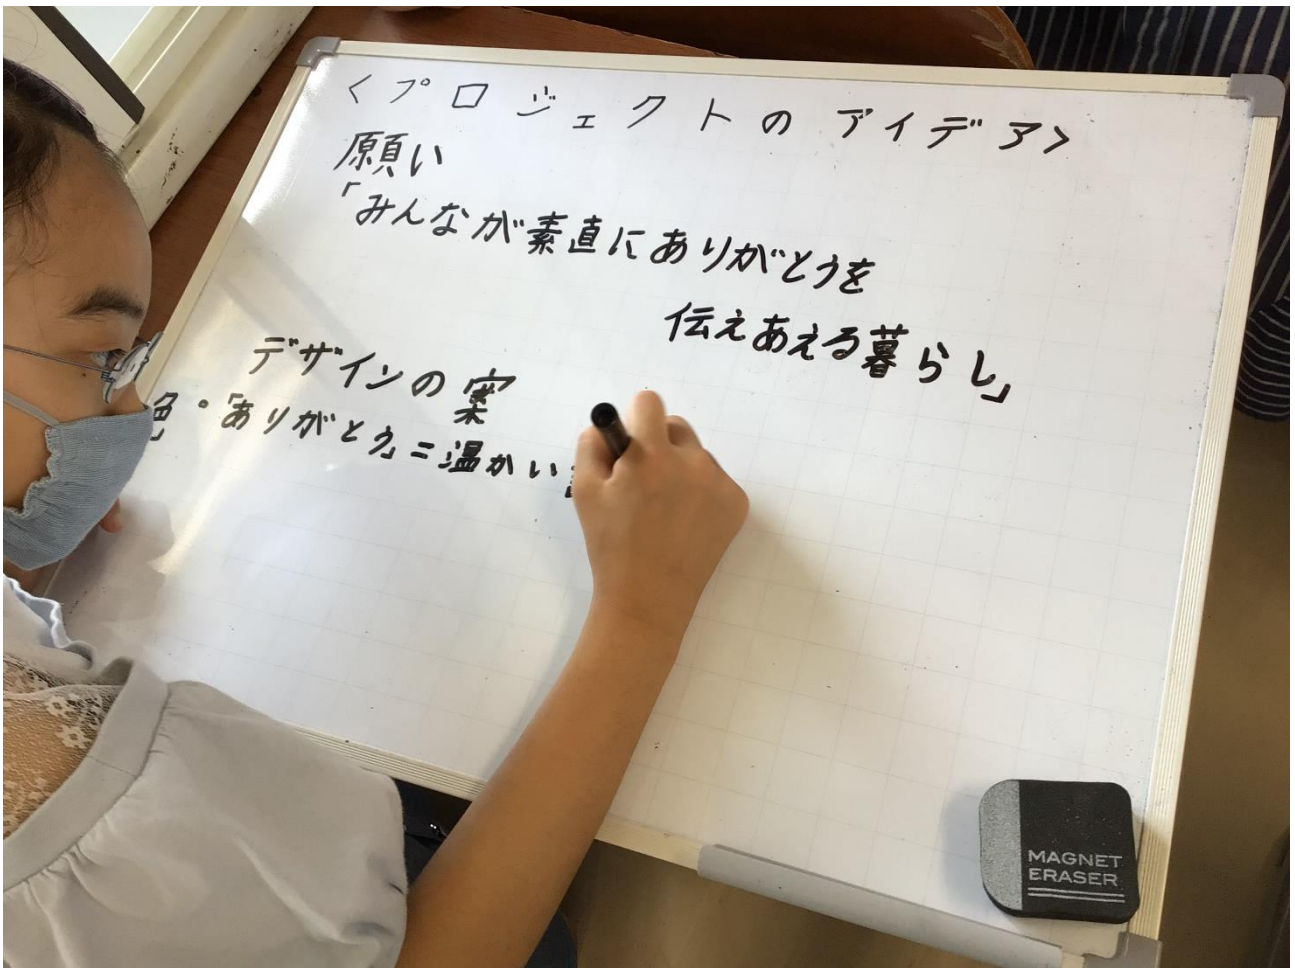 <プロジェクトのアイデア>
願い
「みんなが素直にありがとうを
伝えあえる暮らし」
デザインの案
色・「ありがとう」=温かい
MAGNET
ERASER